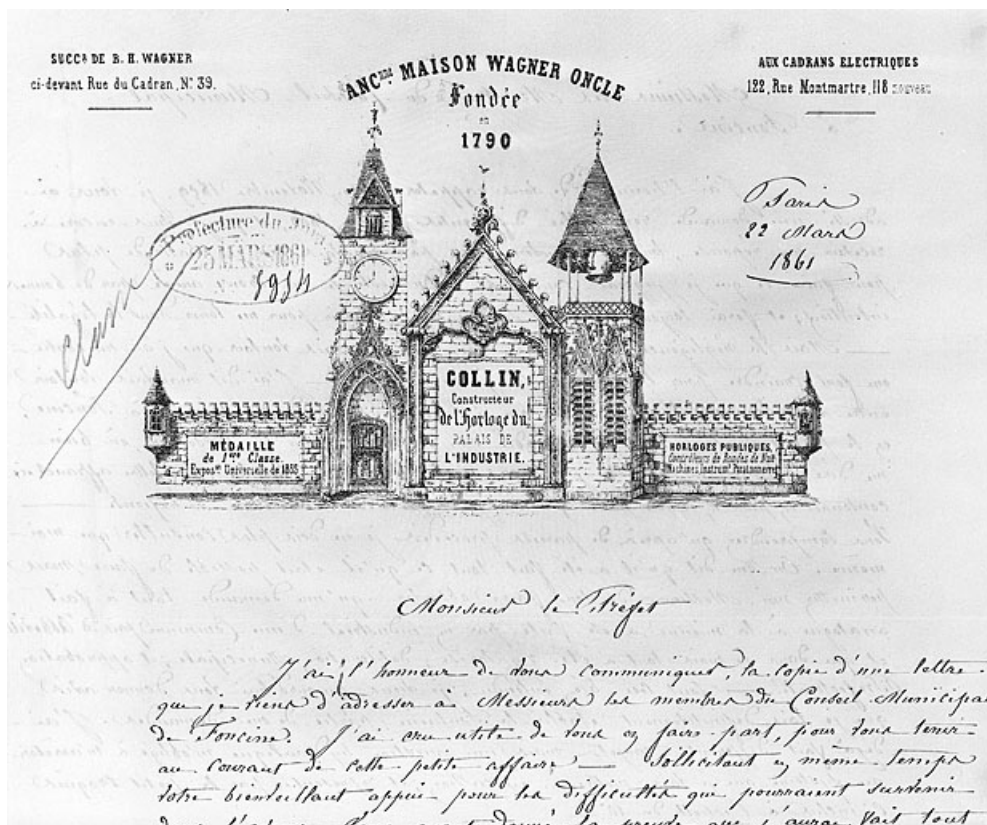 SUCCR DE B. H. WAGNER
ci-devant Rue du Cadran, No 39.
ANCNNE MAISON WAGNER ONCLE
Fondée
en
1790
AUX CADRANS ELECTRIQUES
122, Rue Montmartre, 118 nouveau
Paris
22 Mars
1861
Préfecture du Jura
25 MARS 1861
COLLIN,
Constructeur
de l'Horloge du
PALAIS DE
L'INDUSTRIE.
MÉDAILLE
de 1ère Classe.
Exposon Universelle de 1855
HORLOGES PUBLIQUES,
Contrôleurs de Rondes de Nuit
Machines Instrumts Paratonnerres
Monsieur le Préfet
J'ai l'honneur de vous communiquer, la copie d'une lettre
que je viens d'adresser à Messieurs les membres du Conseil Municipal
de Foncine. J'ai cru utile de vous en faire part, pour vous tenir
au courant de cette petite affaire — Sollicitant en même temps
votre bienveillant appui pour les difficultés qui pourraient survenir